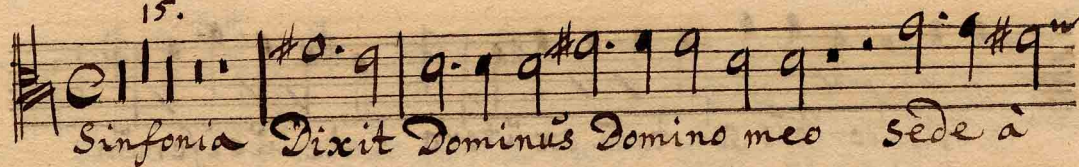 15.
Sinfonia Dixit Dominus Domino meo Sede à